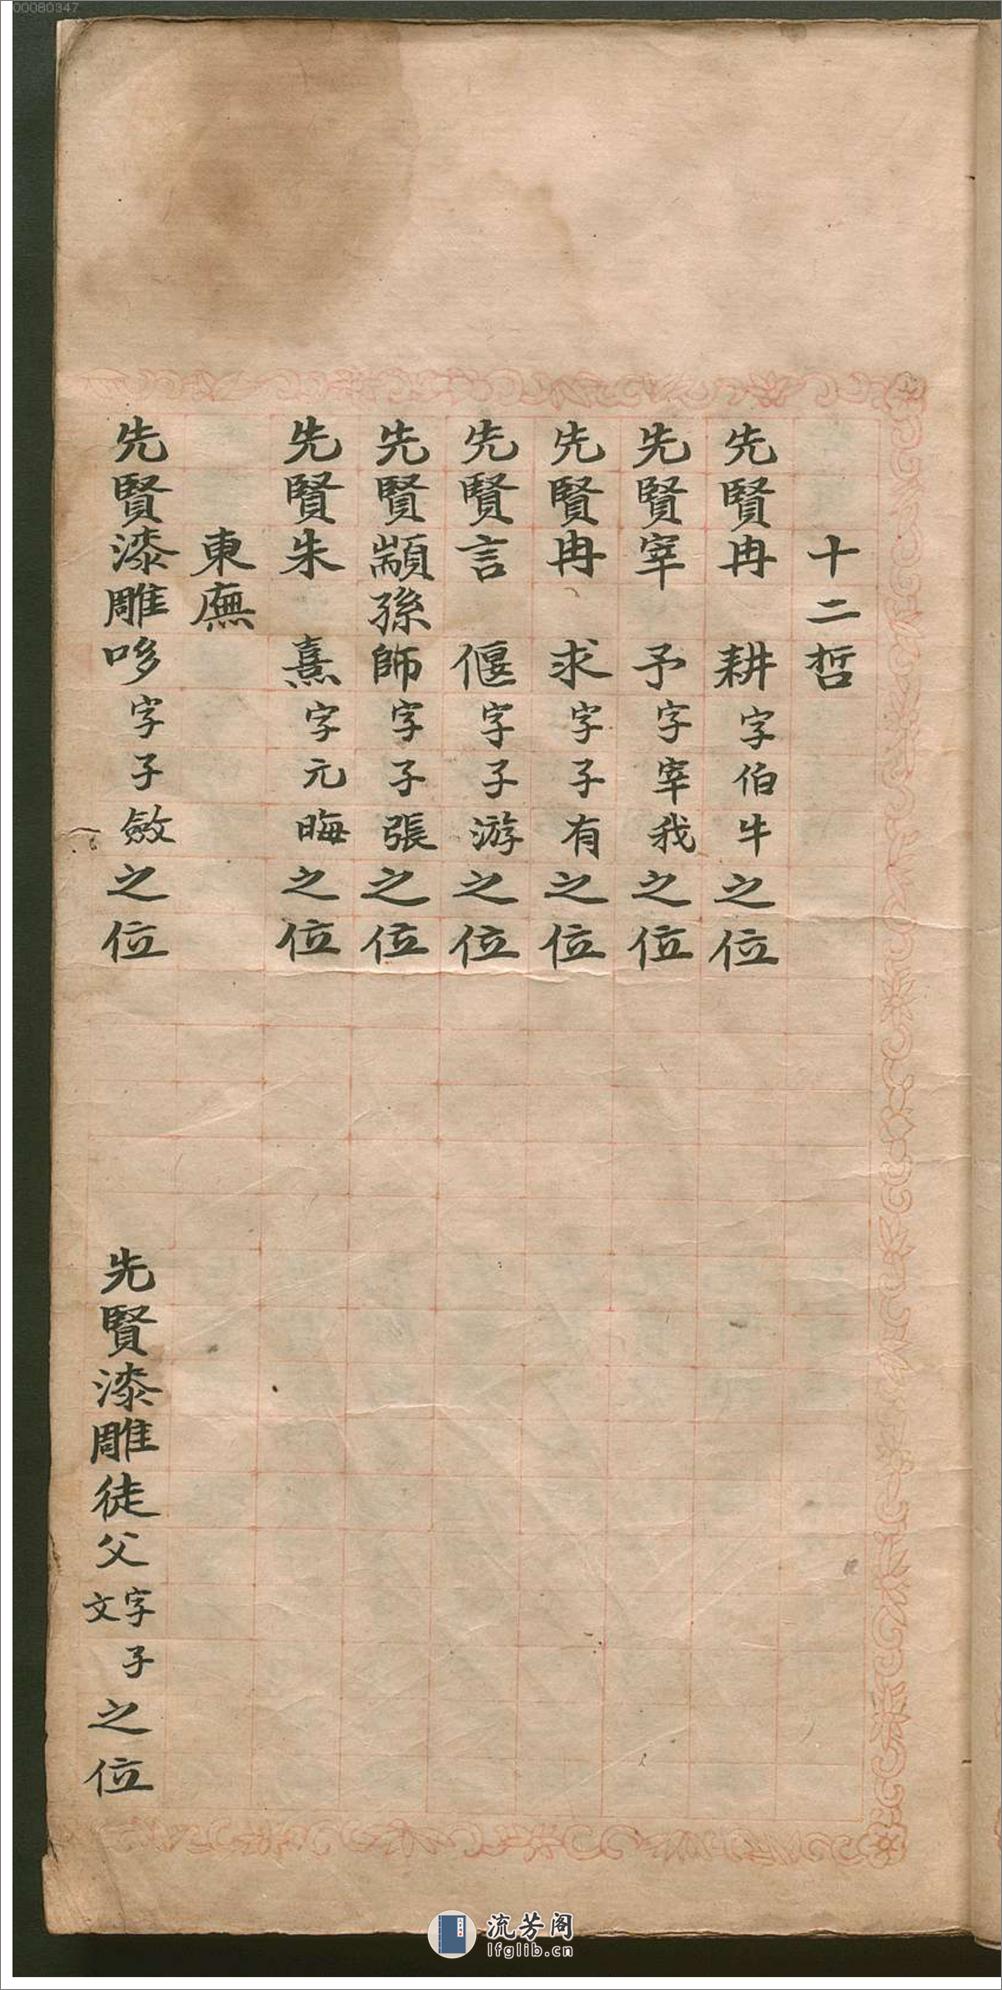 00080347
十二哲
先賢冉　耕字伯牛之位
先賢宰　予字宰我之位
先賢冉　求字子有之位
先賢言　偃字子游之位
先賢顓孫師字子張之位
先賢朱　熹字元晦之位
東廡
先賢漆雕哆字子斂之位
先賢漆雕徒父字子文之位
流芳阁
lfglib.cn